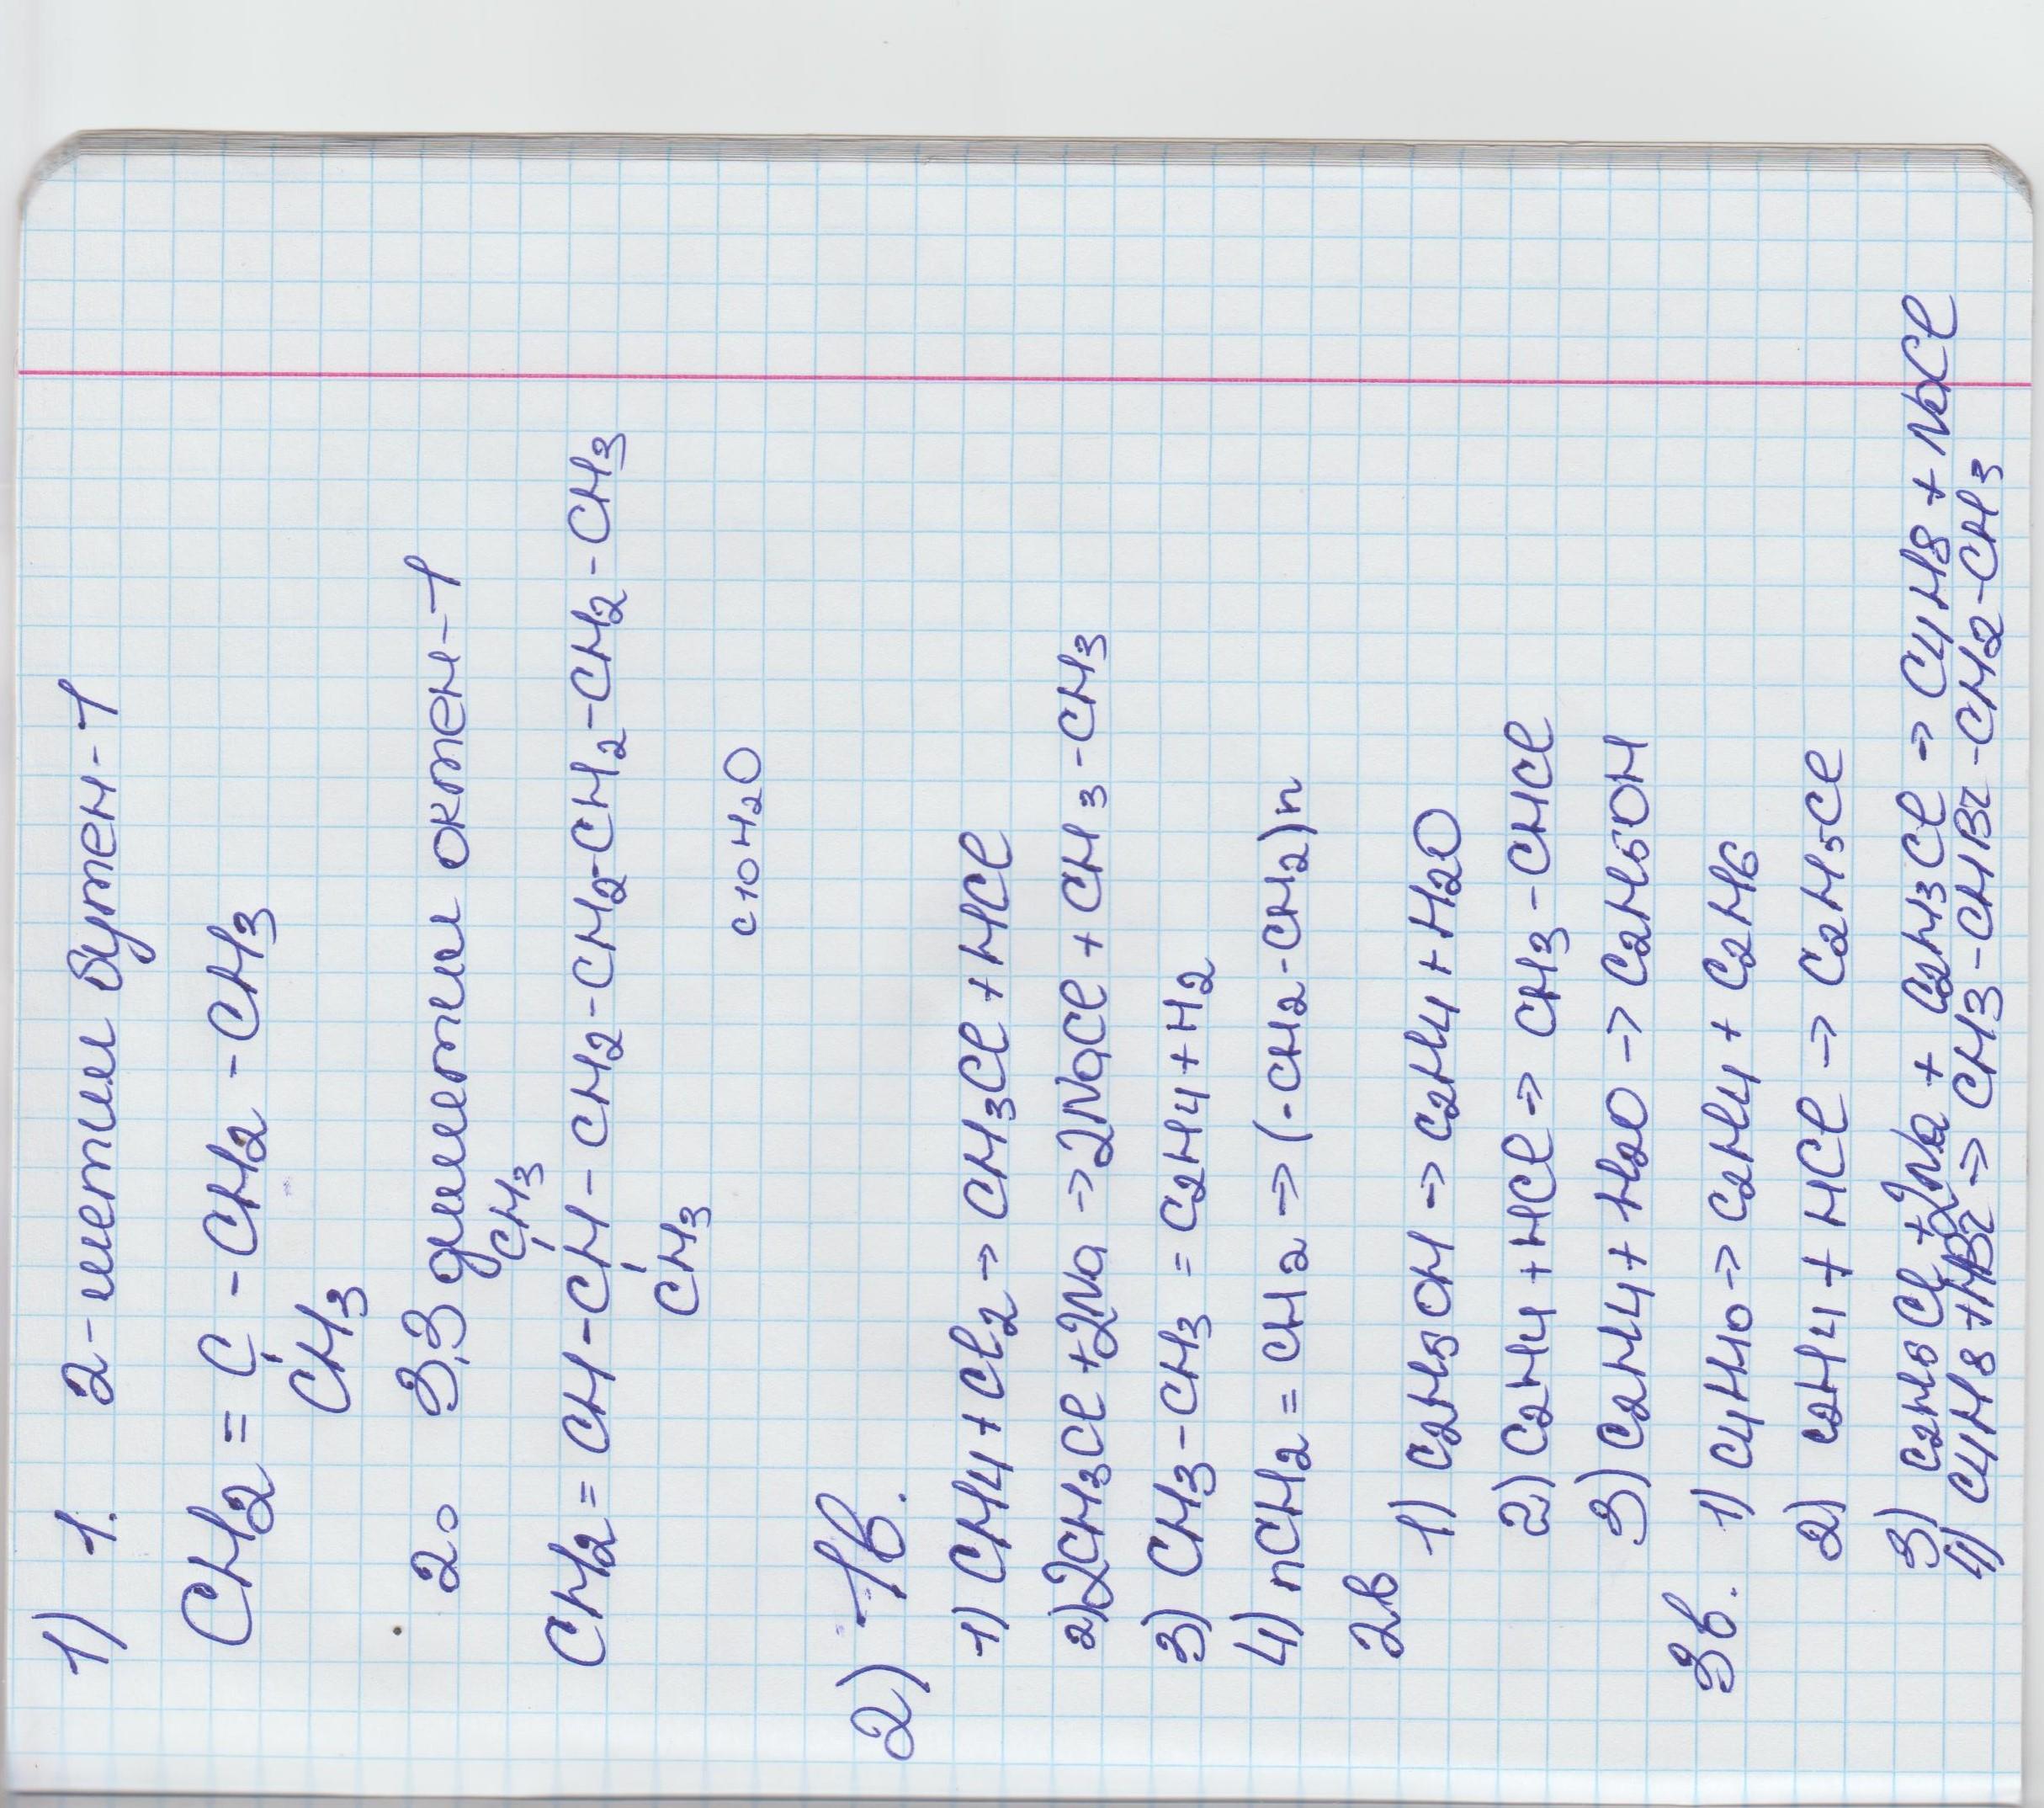 1) 1. 2-метил бутен-1
CH2 = C - CH2 - CH3
CH3
2. 3,3 диметил октен-1
CH3
CH2 = CH - CH - CH - CH2 - CH2 - CH2 - CH2 - CH2 - CH3
CH3
C10H2O
2) 1в.
1) CH4 + Cl2 → CH3Cl + HCl
2) 2CH3Cl + 2Na → 2NaCl + CH3 - CH3
3) CH3 - CH3 = C2H4 + H2
4) nCH2 = CH2 → (-CH2-CH2)n
2в
1) C2H5OH → C2H4 + H2O
2) C2H4 + HCl → CH3 - CHCl
3) C2H4 + H2O → C2H5OH
3в.
1) C4H10 → C2H4 + C2H6
2) C2H4 + HCl → C2H5Cl
3) C2H5Cl + 2Na + C2H3Cl → C4H8 + NaCl
4) C4H8 + HBr → CH3 - CHBr - CH2 - CH3